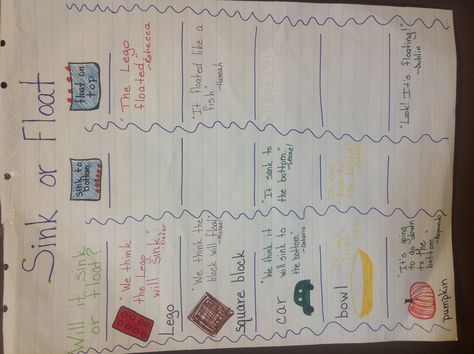 Sink or Float
Will it sink
or float?
sink to
bottom
float on
top
"We think
the Lego
will sink"
Lego
"The Lego
floated"
-Rebecca
"We think the
block will float"
square block
"It floated like a
fish"
-Hannah
"We think it
will sink to
the bottom."
car
"It sank to
the bottom."
bowl
"It's going
to go down
to the
bottom."
-Raymundo
pumpkin
"Look! It's floating!"